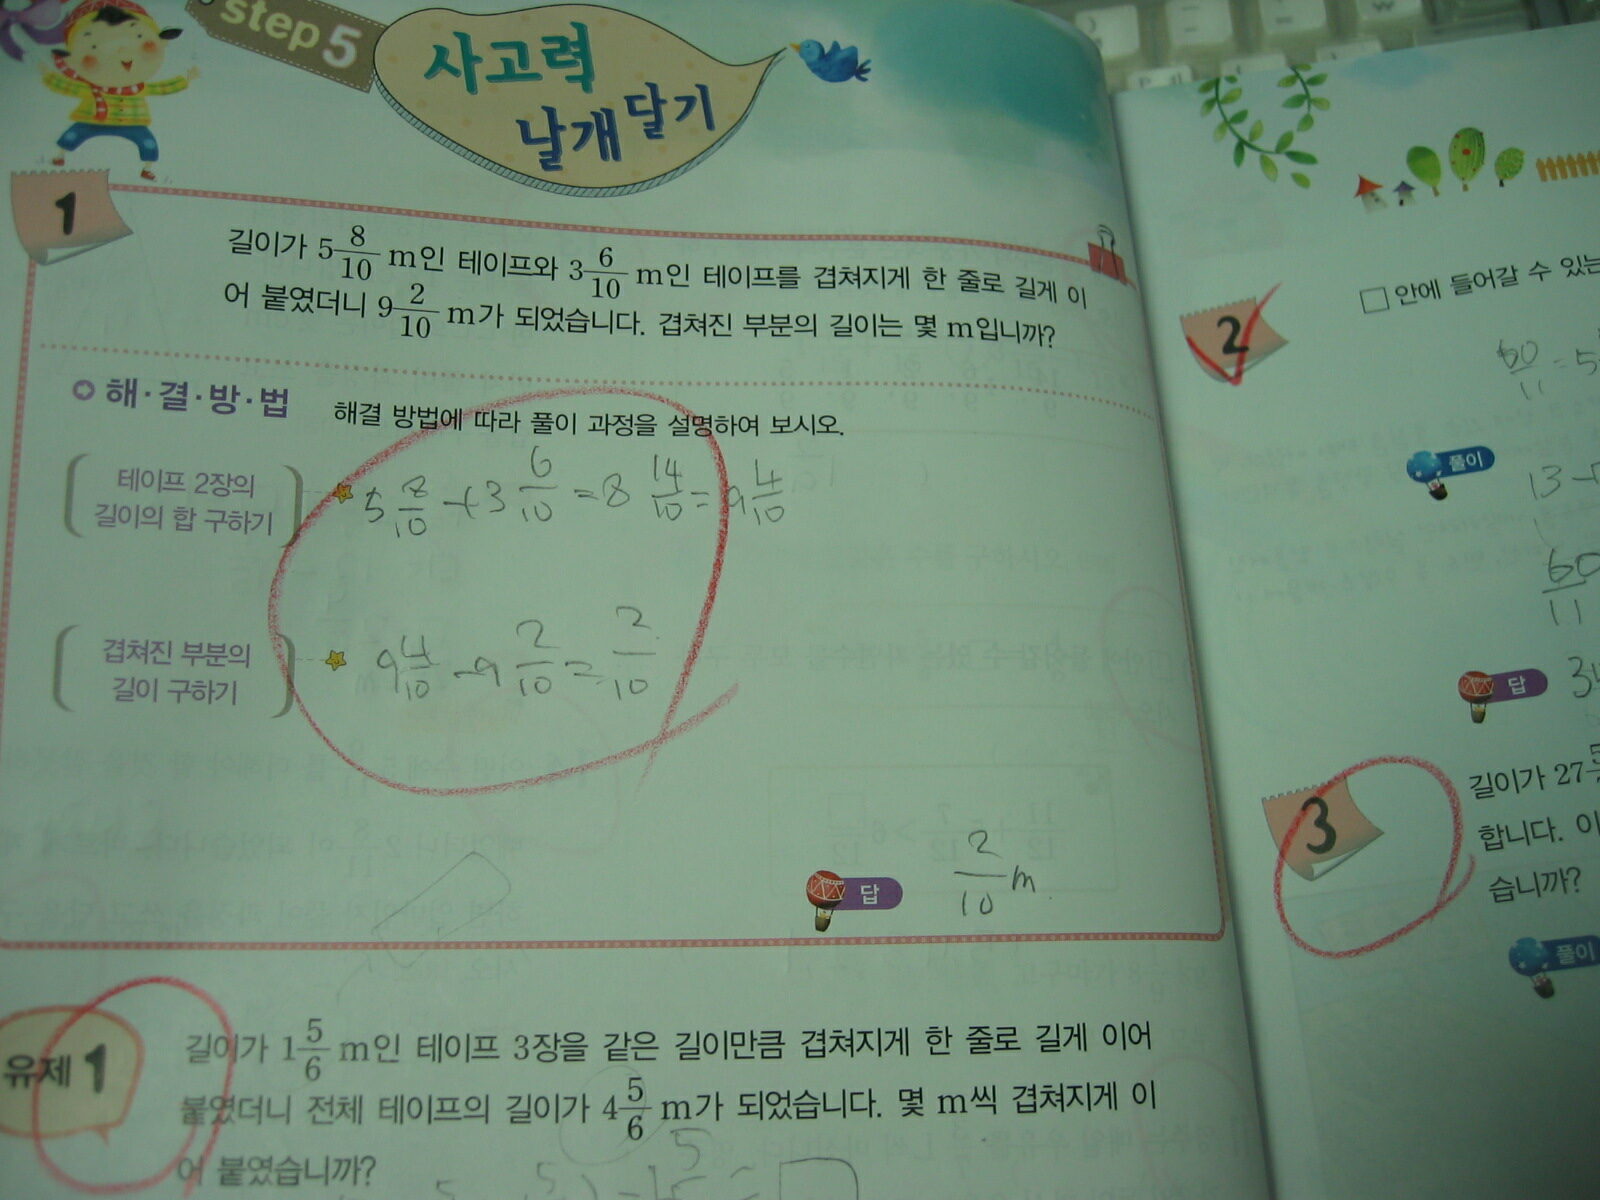 step 5
사고력
날개 달기
1
길이가 5 8/10 m인 테이프와 3 6/10 m인 테이프를 겹쳐지게 한 줄로 길게 이
어 붙였더니 9 2/10 m가 되었습니다. 겹쳐진 부분의 길이는 몇 m입니까?
해·결·방·법
해결 방법에 따라 풀이 과정을 설명하여 보시오.
테이프 2장의
길이의 합 구하기
5 8/10 + 3 6/10 = 8 14/10 = 9 4/10
겹쳐진 부분의
길이 구하기
9 4/10 - 9 2/10 = 2/10
답
2/10 m
유제 1
길이가 1 5/6 m인 테이프 3장을 같은 길이만큼 겹쳐지게 한 줄로 길게 이어
붙였더니 전체 테이프의 길이가 4 5/6 m가 되었습니다. 몇 m씩 겹쳐지게 이
어 붙였습니까?
2
□ 안에 들어갈 수 있는
60/11 = 5
풀이
13 -
60/11
답
3
길이가 27
합니다. 이
습니까?
풀이